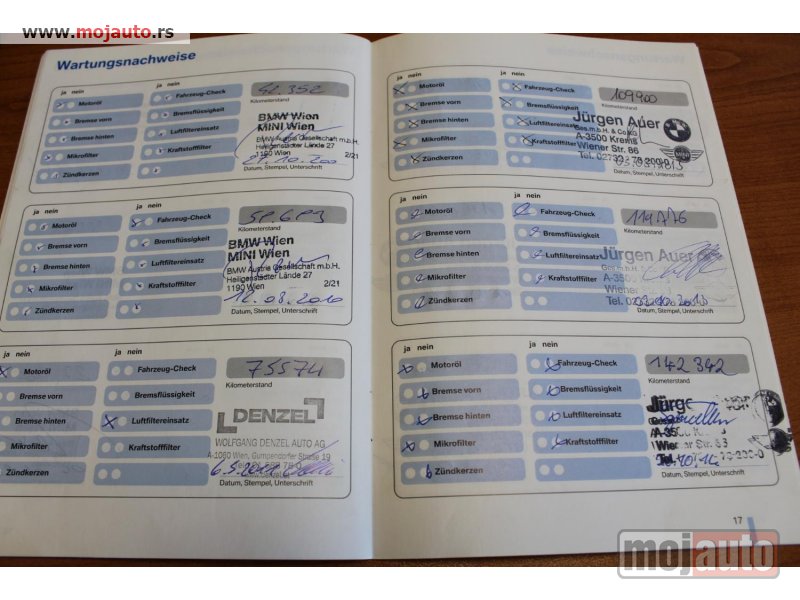 www.mojauto.rs
Wartungsnachweise
ja nein
Motoröl
Bremse vorn
Bremse hinten
Mikrofilter
Zündkerzen
Fahrzeug-Check
Bremsflüssigkeit
Luftfiltereinsatz
Kraftstofffilter
Kilometerstand
BMW Wien
MINI Wien
BMW Austria Gesellschaft m.b.H.
Heiligenstädter Lände 27
1190 Wien 2/21
Datum, Stempel, Unterschrift
ja nein
Motoröl
Bremse vorn
Bremse hinten
Mikrofilter
Zündkerzen
Fahrzeug-Check
Bremsflüssigkeit
Luftfiltereinsatz
Kraftstofffilter
Kilometerstand
BMW Wien
MINI Wien
BMW Austria Gesellschaft m.b.H.
Heiligenstädter Lände 27
1190 Wien 2/21
12.08.2010
Datum, Stempel, Unterschrift
ja nein
Motoröl
Bremse vorn
Bremse hinten
Mikrofilter
Zündkerzen
Fahrzeug-Check
Bremsflüssigkeit
Luftfiltereinsatz
Kraftstofffilter
75574
Kilometerstand
DENZEL
WOLFGANG DENZEL AUTO AG
A-1060 Wien, Gumpendorfer Straße 19
Datum, Stempel, Unterschrift
ja nein
Motoröl
Bremse vorn
Bremse hinten
Mikrofilter
Zündkerzen
Fahrzeug-Check
Bremsflüssigkeit
Luftfiltereinsatz
Kraftstofffilter
109900
Kilometerstand
Jürgen Auer
Ges.m.b.H. & Co KG
A-3500 Krems
Wiener Str. 86
Datum, Stempel, Unterschrift
ja nein
Motoröl
Bremse vorn
Bremse hinten
Mikrofilter
Zündkerzen
Fahrzeug-Check
Bremsflüssigkeit
Luftfiltereinsatz
Kraftstofffilter
Kilometerstand
Jürgen Auer
Ges.m.b.H.
Wiener
Tel.
Datum, Stempel, Unterschrift
ja nein
Motoröl
Bremse vorn
Bremse hinten
Mikrofilter
Zündkerzen
Fahrzeug-Check
Bremsflüssigkeit
Luftfiltereinsatz
Kraftstofffilter
142342
Kilometerstand
Wiener Str.
Tel.
Datum, Stempel, Unterschrift
17
mojauto